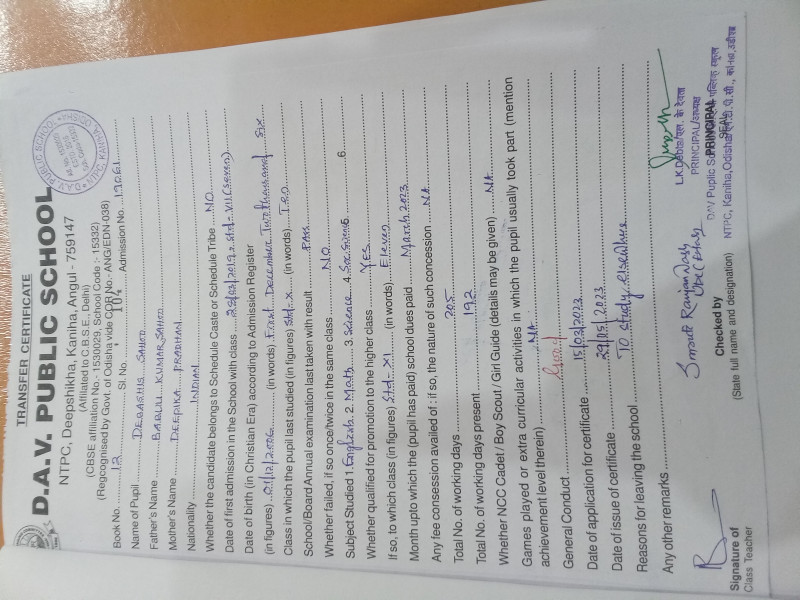 TRANSFER CERTIFICATE
D.A.V. PUBLIC SCHOOL
NTPC, Deepshikha, Kaniha, Angul - 759147
(Affiliated to C.B.S.E. Delhi)
(CBSE affiliation No.- 1530029, School Code :- 15332)
(Regcognised by Govt. of Odisha vide COR No.: ANG/EDN-038)
D.A.V. PUBLIC SCHOOL
NTPC, KANIHA, ODISHA
Book No. 12 Sl. No. 104 Admission No. 19061
Name of Pupil DEBASHIS SAHOO
Father's Name BABULI KUMAR SAHOO
Mother's Name DEEPIKA PRADHAN
Nationality INDIAN
Whether the candidate belongs to Schedule Caste or Schedule Tribe NO
Date of first admission in the School with class 22/03/2019 Std-VII (Seven)
Date of birth (in Christian Era) according to Admission Register
(in figures) 01/12/2006 (in words) First December Two thousand Six
Class in which the pupil last studied (in figures) Std-X (in words) Ten
School/Board Annual examination last taken with result Pass
Whether failed, if so once/twice in the same class NO
Subject Studied 1. English 2. Math 3. Science 4. Soc. Science 5. 6
Whether qualified for promotion to the higher class Yes
If so, to which class (in figures) Std-XI (in words) Eleven
Month upto which the (pupil has paid) school dues paid March 2023
Any fee consession availed of : if so, the nature of such concession NA
Total No. of working days 205
Total No. of working days present 192
Whether NCC Cadet / Boy Scout / Girl Guide (details may be given) NA
Games played or extra curricular activities in which the pupil usually took part (mention
achievement level therein) NA
General Conduct Good
Date of application for certificate 15/05/2023
Date of issue of certificate 29/05/2023
Reasons for leaving the school To study elsewhere
Any other remarks
Signature of
Class Teacher
Checked by
(State full name and designation)
PRINCIPAL
SEAL
PRINCIPAL/प्राचार्य
DAV Puplic School
NTPC, Kaniha, Odisha